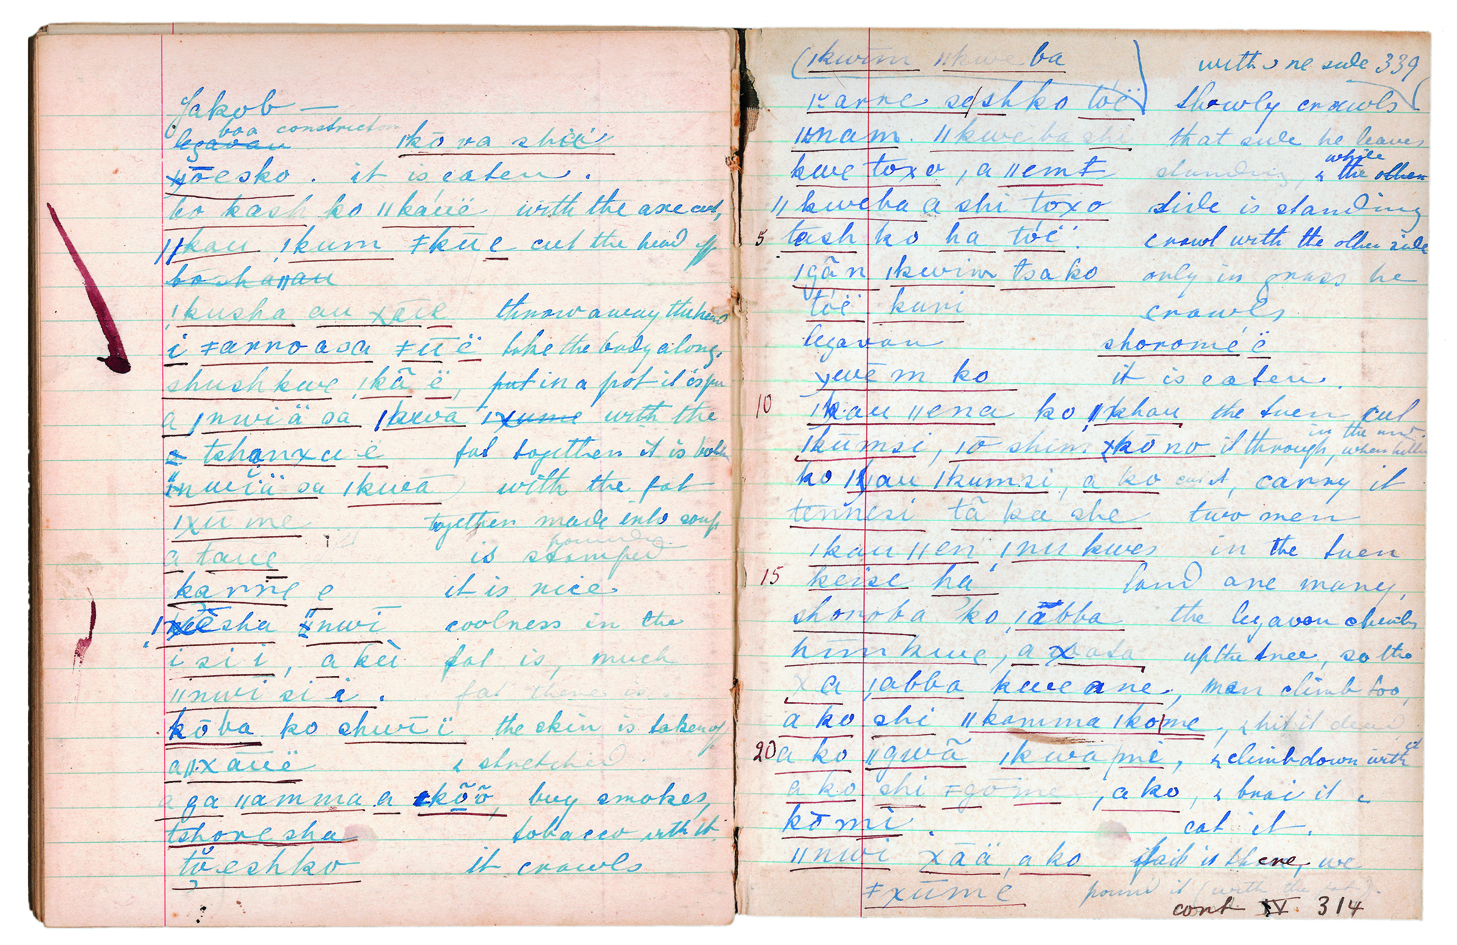 Jakob —
boa constrictor
legavan ǀkōva shiĕ́
ӿōesko . it is eaten .
bo kash ko ǁkáuë with the axe cut,
ǁkau ǃkum ǂkūe cut the head off
bo sha ǁau
ǃkusha au xāıe throw away the head
i ǂarroasa ǂūë take the body along,
shushkwe ǀkāë, put in a pot it is put
a ǀnwiä sa ǀkwa ǀxume with the
tshanxu e fat together it is boiled
ǁnwĭä sa ǀkwā with the fat
ǀxūme together made into soup
pounded
a taue is stamped
kanne e it is nice
sha ǁnwī coolness in the
isii, a küì fat is, much
ǁnwi si i . fat there is .
kōba ko shwīï the skin is taken off
aǁxāuë & stretched
a ga ǁamma a kõõ, buy smokes,
tshoresha tobacco with it
tŏeshko it crawls
(ǀkwim ǁkweba with one side 339
ǀarre seshko tóë slowly crawls
ǁnam. ǁkweba she that side he leaves
while
kwe toxo, a ǁemt standing, & the other
ǁkweba a shi toxo side is standing
5 tash ko ha tóë. crawl with the other side
ǀgãn ǀkwim tsako only in grass he
tóë kuri crawls
legavan shoroméë
ӿwēm ko it is eaten .
10 ǀkau ǁena ko ǁkhau the tuen cut
in the
ǀkūmsi, ǀo shim xkōno it through, when
ko ǁau ǀkumsi, a ko cut it, carry it
tennesi tā ka she two men
ǀkau ǁen, ǀnu kwes in the tuen
15 keise há land are many,
shoroba ko, ǀābba the legavan climbs
himkwe, a xasa up the tree, so the
xa ǀabba kwe ane, men climb too,
a ko shi ǁkamma ǀkome, & hit it dead
20 a ko ǁgwā ǀkwa me, & climb down with it
a ko shi ǂgome, a ko, & brai it &
kōmì . eat it .
ǁnwi xāä, a ko if fat is there, we
ǂxūme pound it (with the fat).
cont IV. 314